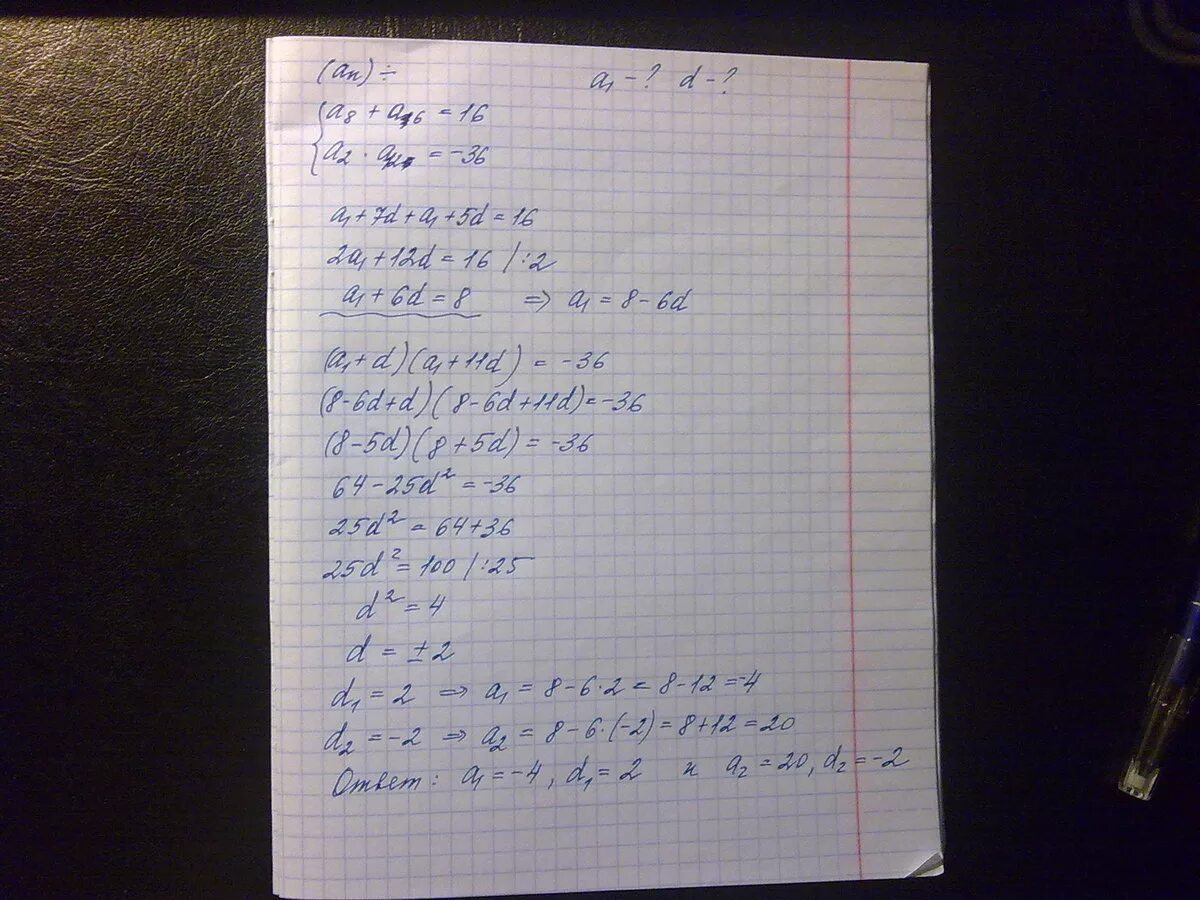 (aₙ) ÷ a₁ - ? d - ?
{ a₈ + a₆ = 16
a₂ · a₁₂ = -36
a₁ + 7d + a₁ + 5d = 16
2a₁ + 12d = 16 / : 2
a₁ + 6d = 8 => a₁ = 8 - 6d
(a₁ + d)(a₁ + 11d) = -36
(8 - 6d + d)(8 - 6d + 11d) = -36
(8 - 5d)(8 + 5d) = -36
64 - 25d² = -36
25d² = 64 + 36
25d² = 100 / : 25
d² = 4
d = ± 2
d₁ = 2 => a₁ = 8 - 6 · 2 = 8 - 12 = -4
d₂ = -2 => a₂ = 8 - 6 · (-2) = 8 + 12 = 20
Ответ: a₁ = -4, d₁ = 2 и a₂ = 20, d₂ = -2